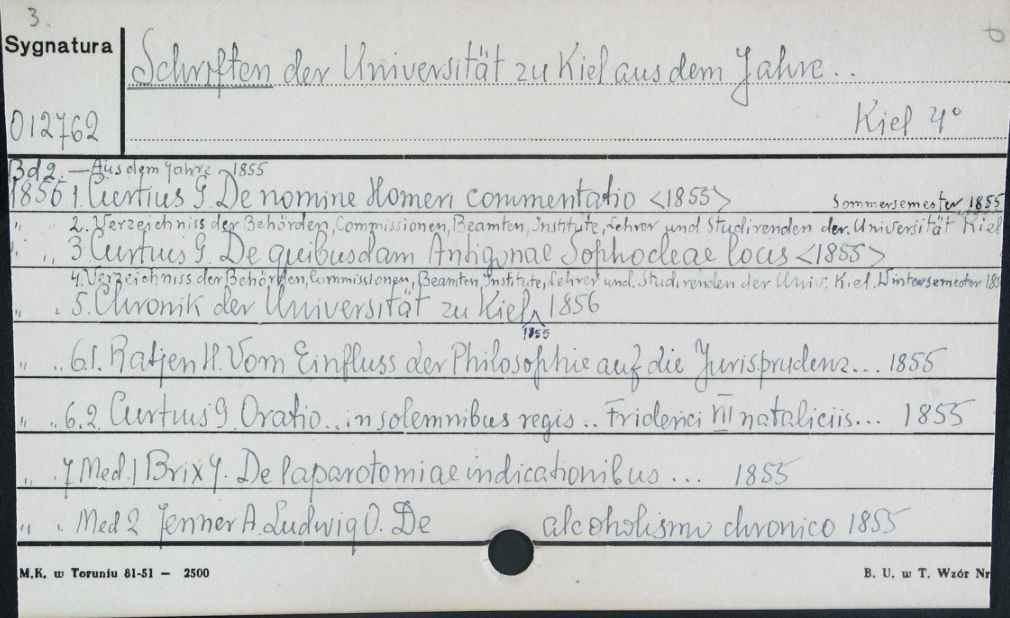 3.
Sygnatura
Schriften der Universität zu Kiel aus dem Jahre..
012762
Kiel 4°
Bd 2. — Aus dem Jahre 1855
1856 1. Curtius G. De nomine Homeri commentatio <1855> Sommersemester 1855
„ 2. Verzeichniss der Behörden, Commissionen, Beamten, Institute, Lehrer und Studirenden der Universität Kiel
„ „ 3 Curtius G. De quibusdam Antigonae Sophocleae locis <1855>
4. Verzeichniss der Behörden, Commissionen, Beamten Institute, Lehrer und Studirenden der Univ. Kiel. Wintersemester 185
„ . 5. Chronik der Universität zu Kiel, 1856
1855
„ .. 6.1. Ratjen H. Vom Einfluss der Philosophie auf die Jurisprudenz... 1855
„ .. 6.2. Curtius G. Oratio.. in solemnibus regis.. Friderici VII nataliciis... 1855
„ . 7 Med. 1 Brix J. De laparotomiae indicationibus ... 1855
„ . Med 2 Jenner A. Ludwig O. De alcoholismo chronico 1855
M.K. w Toruniu 81-51 — 2500
B. U. w T. Wzór Nr